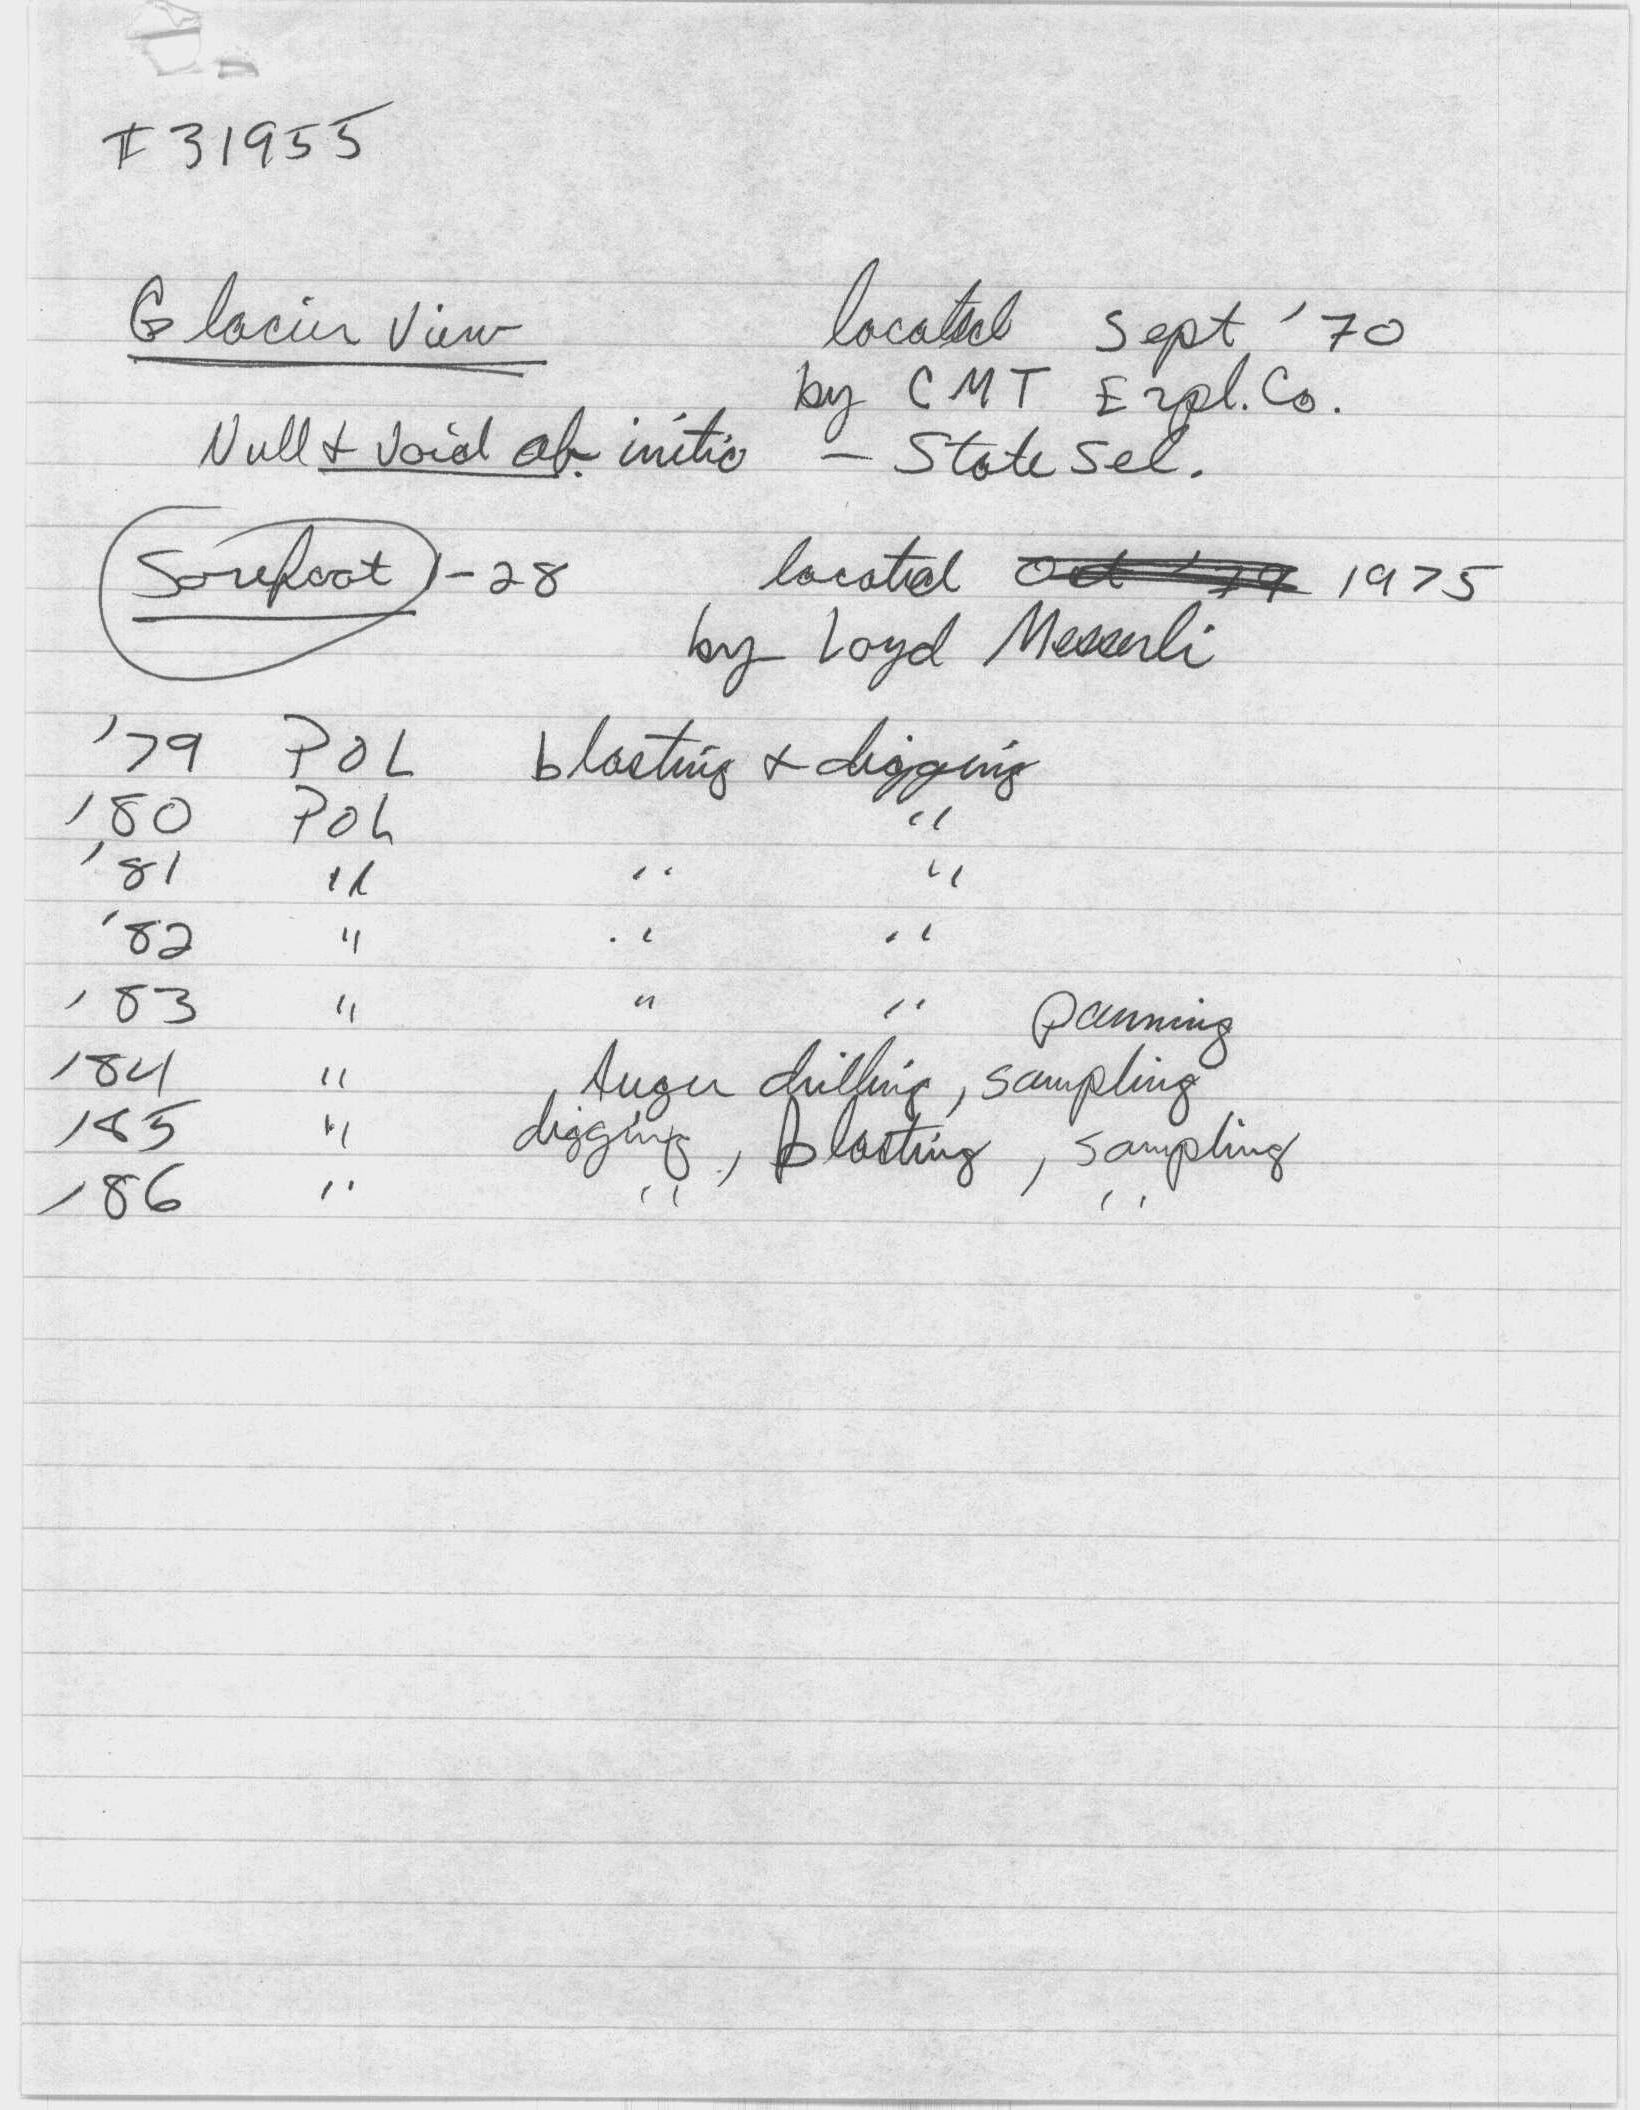 I 31955
Glacier View located Sept '70
by CMT Expl. Co.
Null & Void ab. initio - State Sel.
Sorefoot 1-28 located Oct '79 1975
by Loyd Messerli
'79 POL blasting & digging
'80 POL "
'81 " " "
'82 " " "
'83 " " " panning
'84 " Auger drilling, sampling
'85 " digging, blasting, sampling
'86 " " "